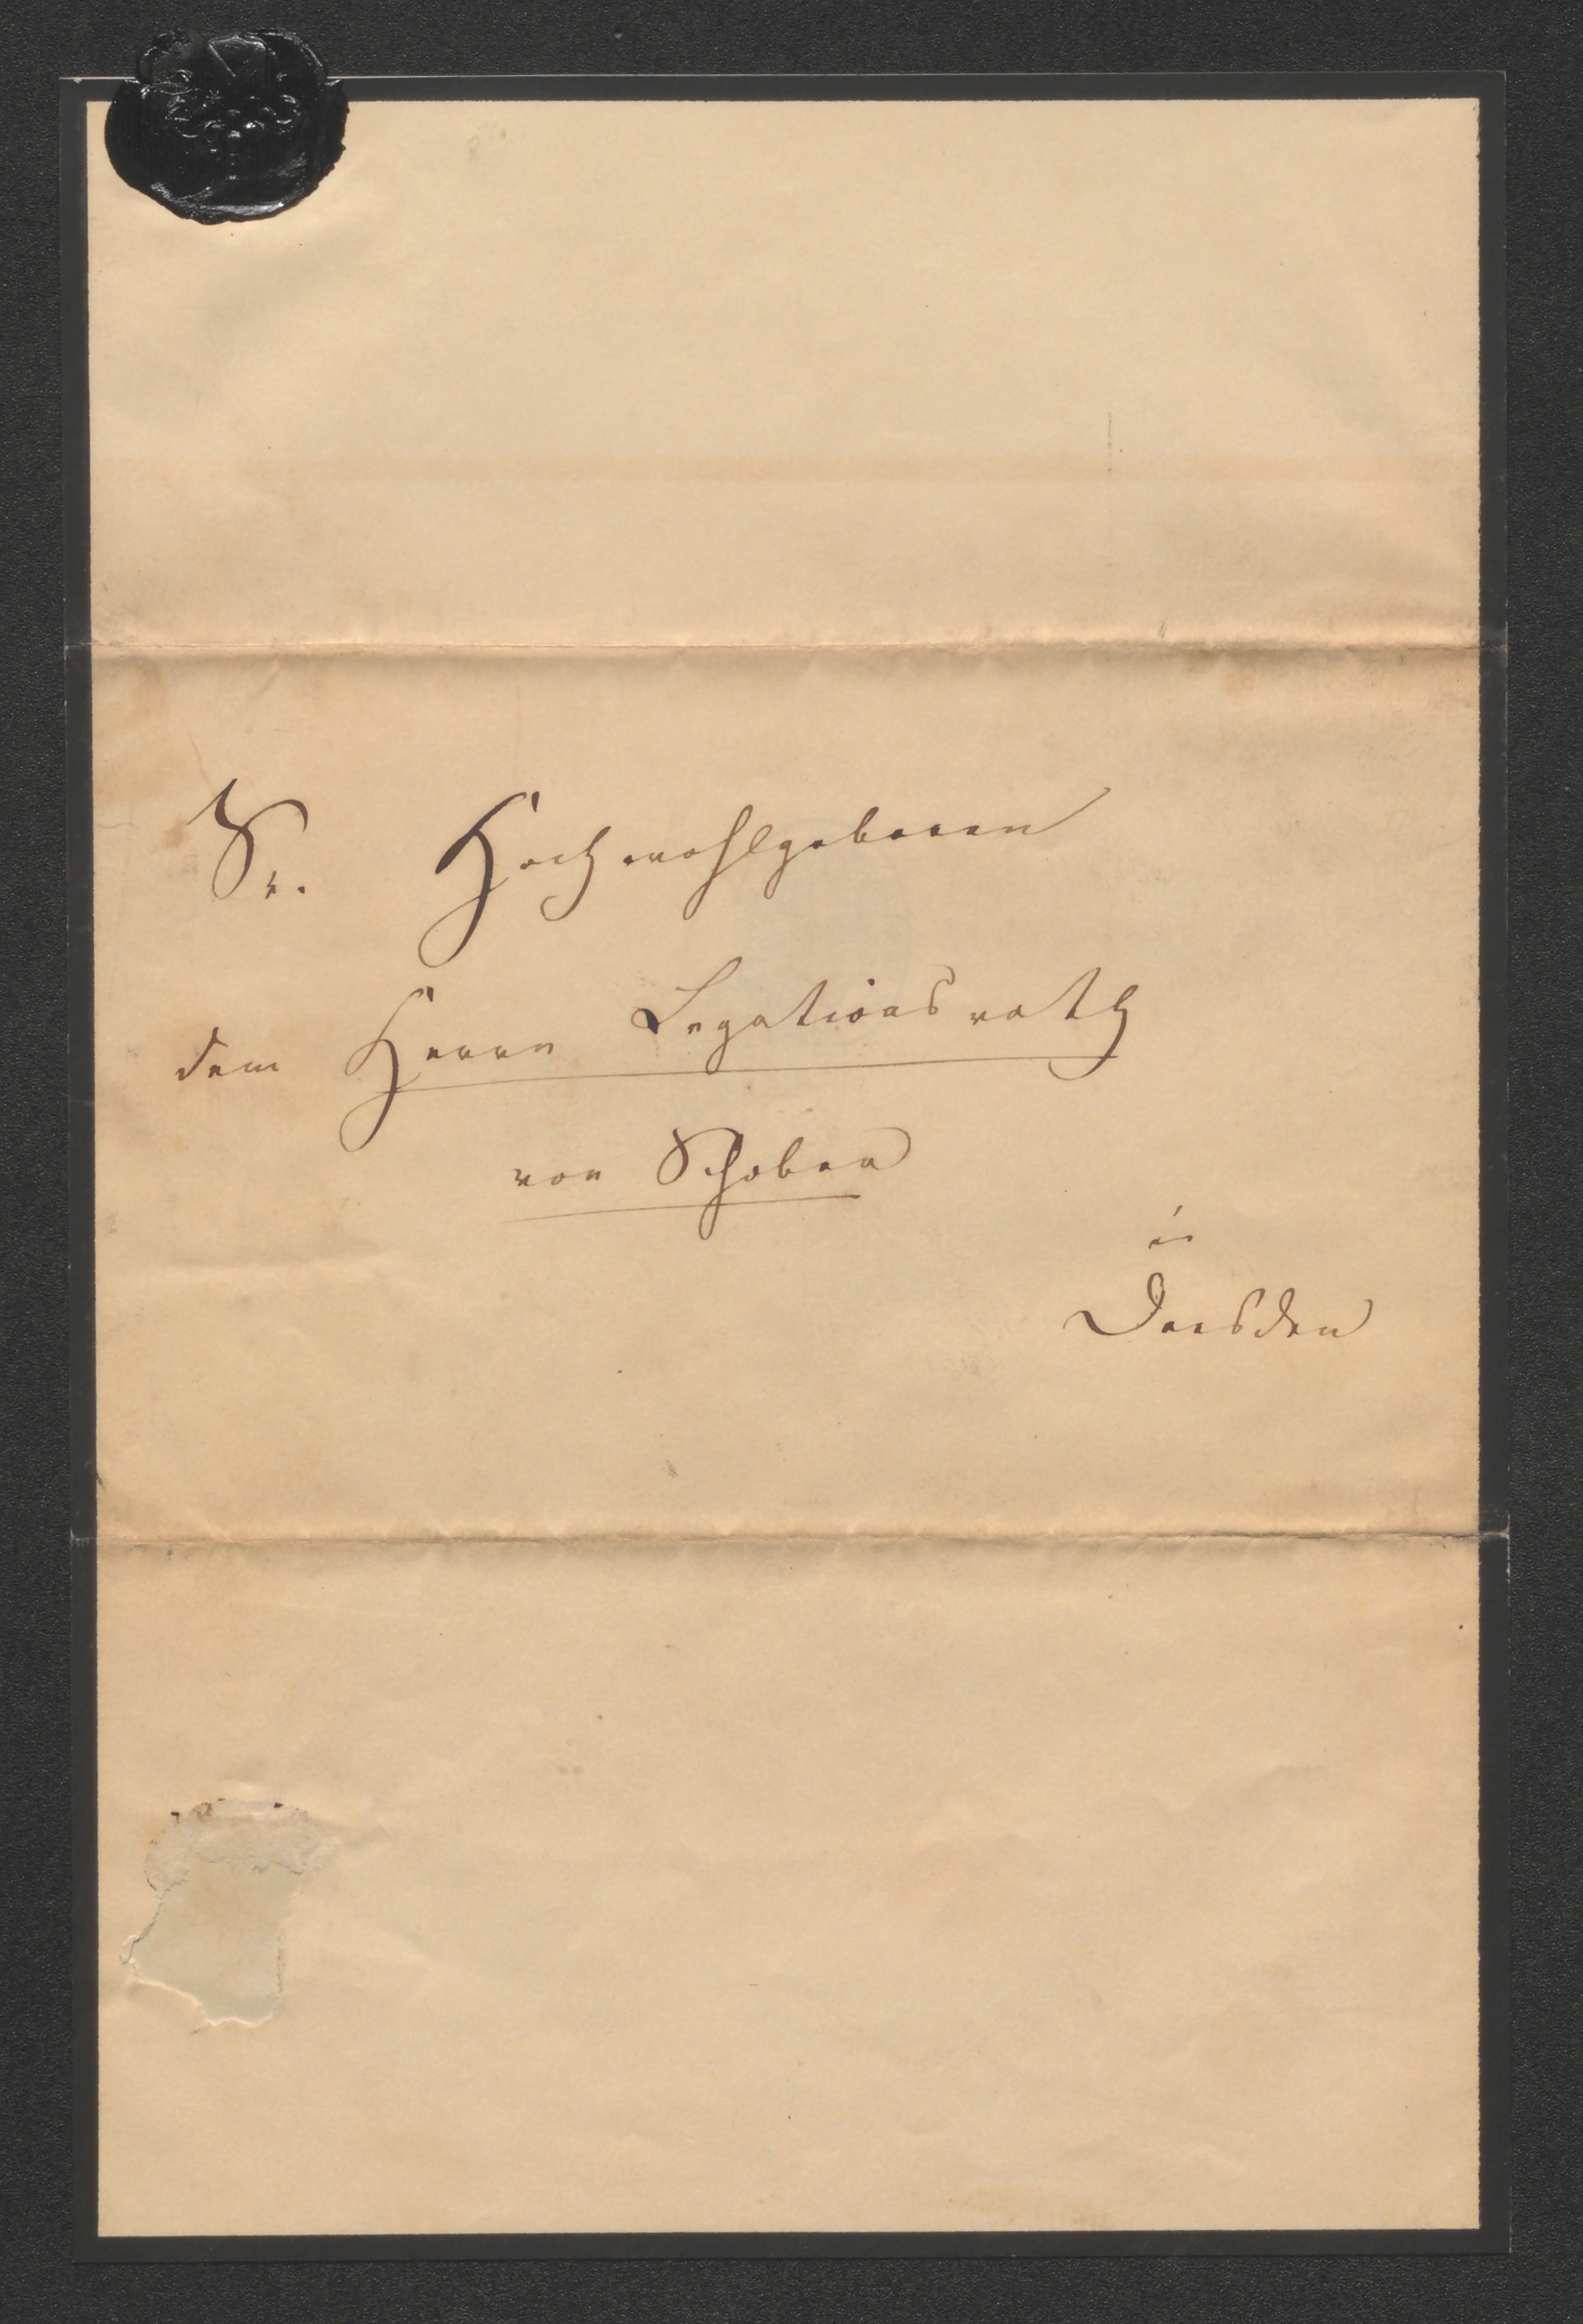 Sr. Hochwohlgeboren
dem Herrn Legationsrath
von Schober
in
Dresden